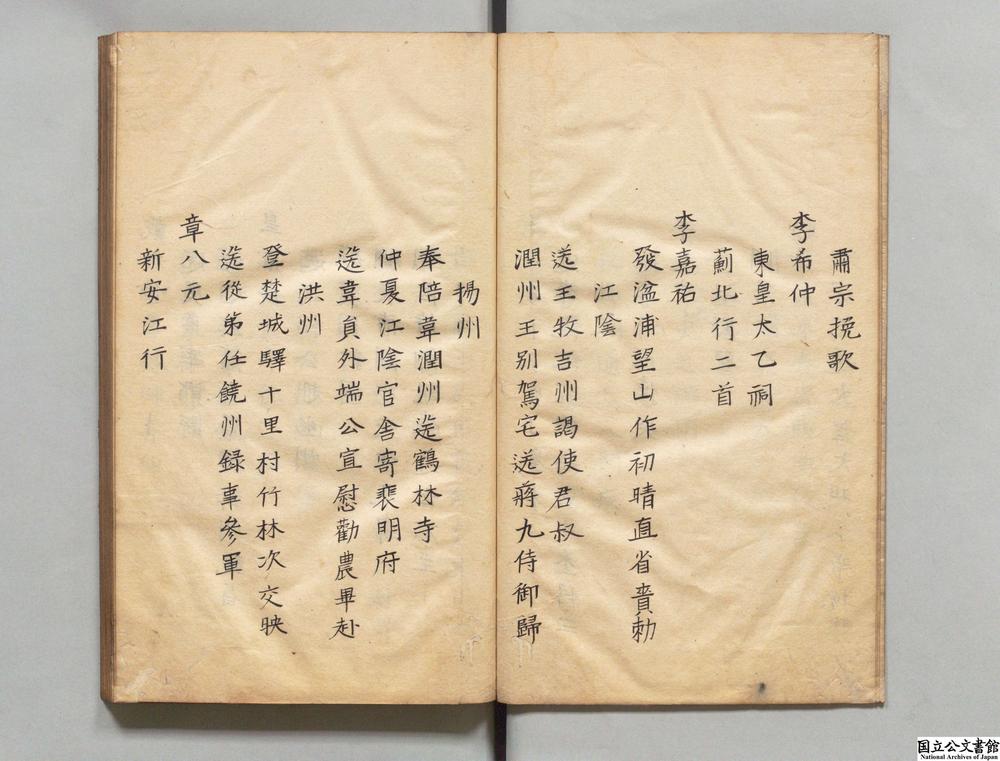 肅宗挽歌
李希仲
東皇太乙祠
薊北行二首
李嘉祐
發湓浦望山作初晴直省賫勅
江陰
送王牧吉州謁使君叔
潤州王别駕宅送蔣九侍御歸
揚州
奉陪韋潤州遊鶴林寺
仲夏江陰官舎寄裴明府
送韋員外端公宣慰勸農畢赴
洪州
登楚城驛十里村竹林次交映
送從弟任饒州録事參軍
章八元
新安江行
国立公文書館
National Archives of Japan